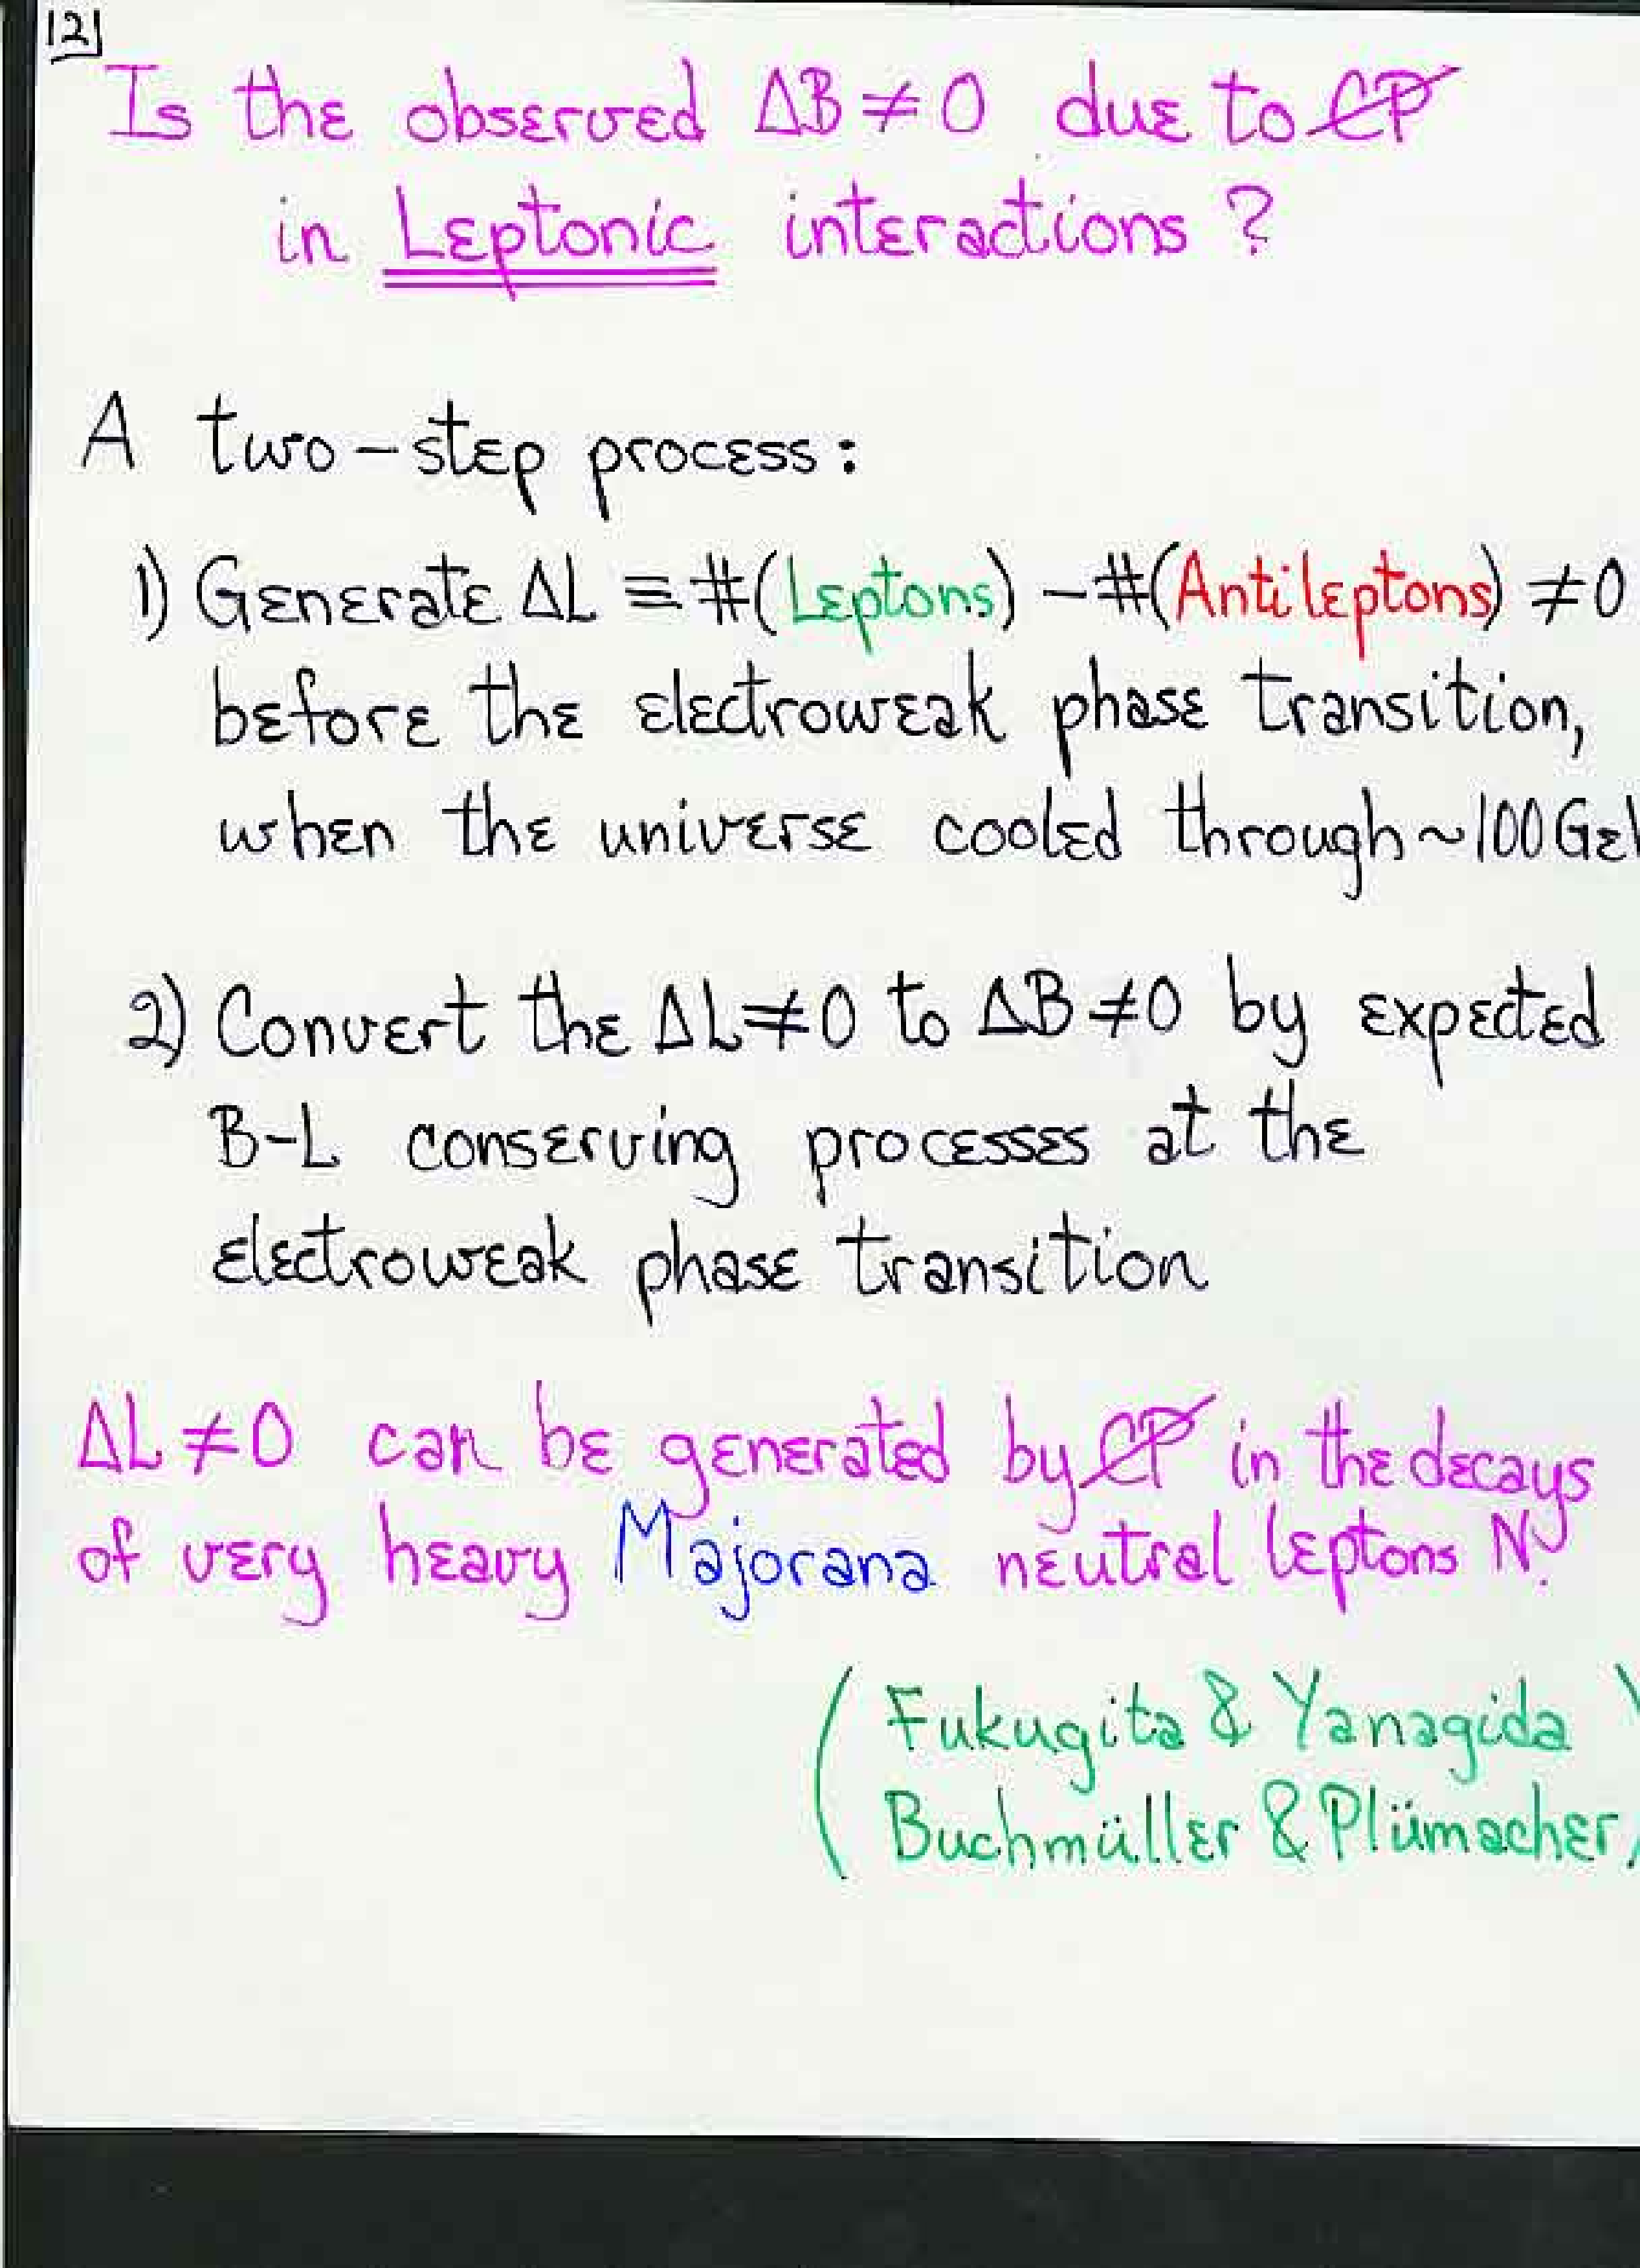 121
Is the observed ΔB≠0 due to C̸P̸
in Leptonic interactions?
A two-step process:
1) Generate ΔL ≡ #(Leptons) - #(Antileptons) ≠0
before the electroweak phase transition,
when the universe cooled through ~100 GeV
2) Convert the ΔL≠0 to ΔB≠0 by expected
B-L conserving processes at the
electroweak phase transition
ΔL≠0 can be generated by C̸P̸ in the decays
of very heavy Majorana neutral leptons N.
(Fukugita & Yanagida
Buchmüller & Plümacher)